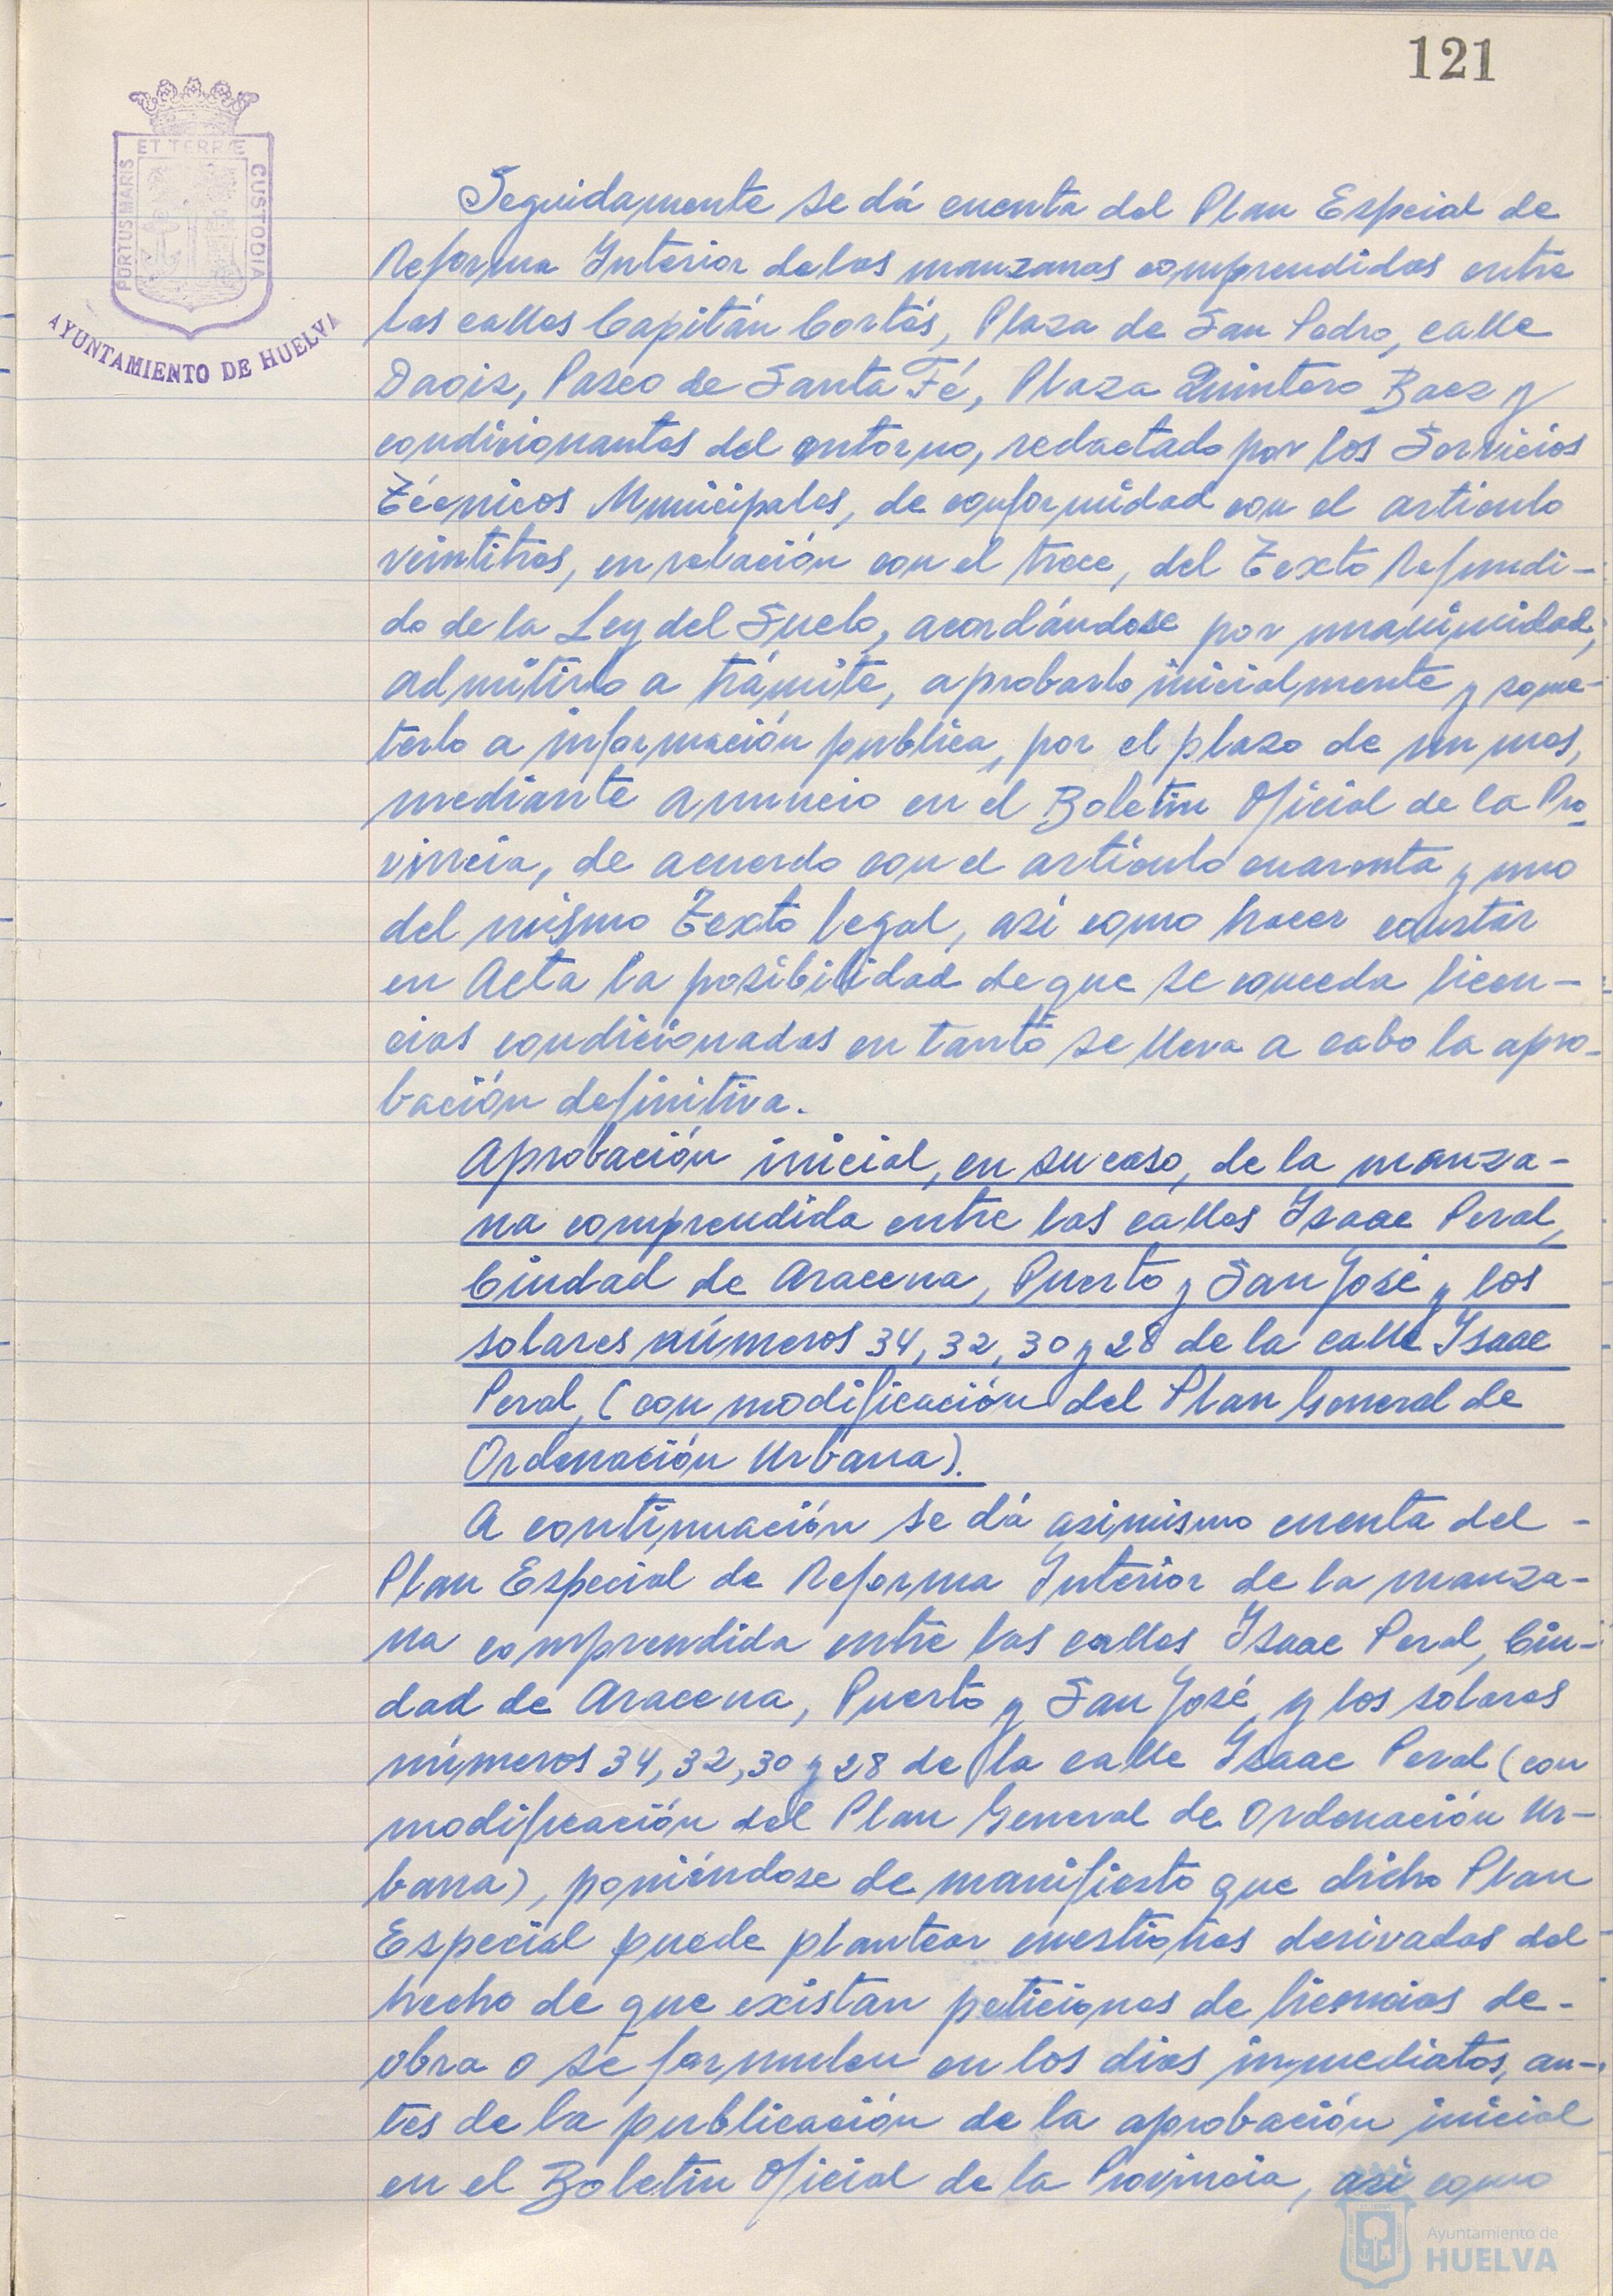 121
ET TERRÆ
PORTUS MARIS
CUSTODIA
AYUNTAMIENTO DE HUELVA
Seguidamente se dá cuenta del Plan Especial de
Reforma Interior de las manzanas comprendidas entre
las calles Capitán Cortés, Plaza de San Pedro, calle
Daoiz, Paseo de Santa Fé, Plaza Quintero Baez y
condicionantes del entorno, redactado por los Servicios
Técnicos Municipales, de conformidad con el articulo
veintitres, en relación con el trece, del Texto Refundi-
do de la Ley del Suelo, acordándose por unanimidad,
admitirlo a trámite, aprobarlo inicialmente y some-
terlo a información publica, por el plazo de un mes,
mediante anuncio en el Boletin Oficial de la Pro
vincia, de acuerdo con el artículo cuarenta y uno
del mismo Texto legal, asi como hacer constar
en Acta la posibilidad de que se conceda licen-
cias condicionadas en tanto se lleva a cabo la apro-
bación definitiva.
Aprobación inicial, en su caso, de la manza-
na comprendida entre las calles Isaac Peral,
Ciudad de Aracena, Puerto y San José y los
solares números 34, 32, 30 y 28 de la calle Isaac
Peral, (con modificación del Plan General de
Ordenación Urbana).
A continuación se dá asimismo cuenta del -
Plan Especial de Reforma Interior de la manza-
na comprendida entre las calles Isaac Peral, Ciu-
dad de Aracena, Puerto y San José, y los solares
números 34, 32, 30 y 28 de la calle Isaac Peral (con
modificación del Plan General de Ordenación Ur-
bana), poniéndose de manifiesto que dicho Plan
Especial puede plantear cuestiones derivadas del
hecho de que existan peticiones de licencias de-
obra o se formulen en los dias inmediatos, an-
tes de la publicación de la aprobación inicial
en el Boletin Oficial de la Provincia, asi como
Ayuntamiento de
HUELVA